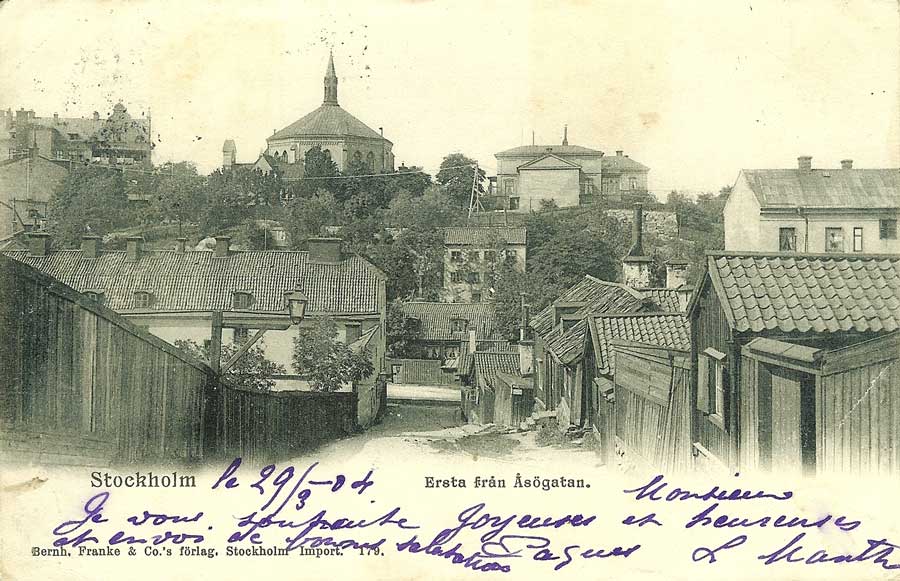 Stockholm le 29/3 - 04 Ersta från Åsögatan. Monsieur
Je vous souhaite Joyeuses et heureuses
et envoi de bonnes salutations Pâques L Manth
Bernh. Franke & Co.'s förlag. Stockholm Import. 179.